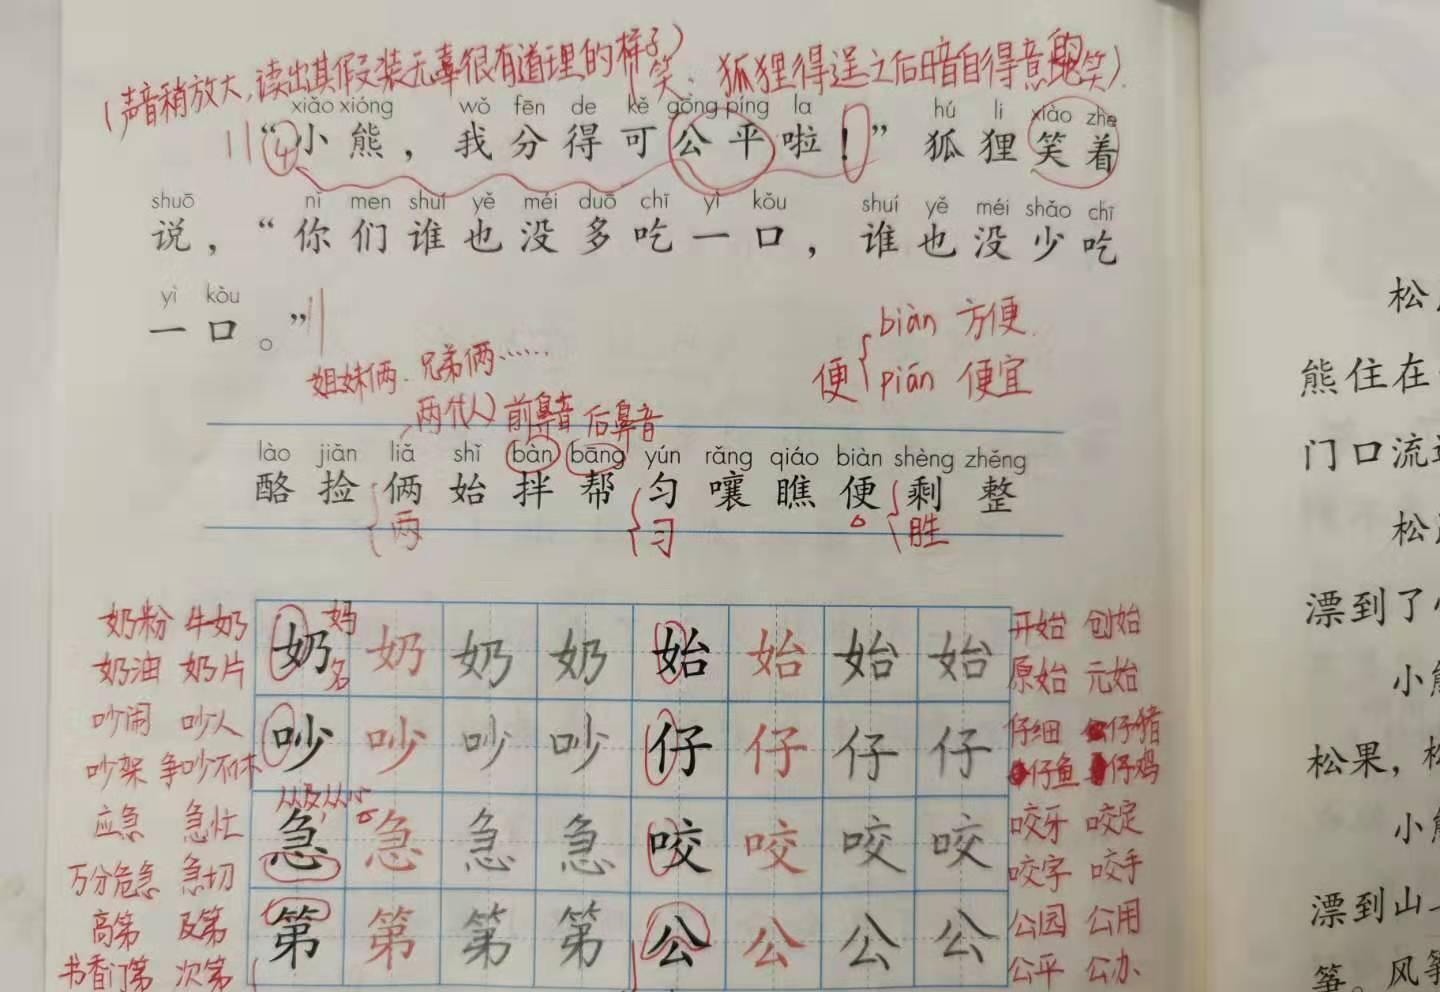 (声音稍放大,读出其假装无辜很有道理的样子)
笑、狐狸得逞之后暗自得意的笑).
xiǎo xióng wǒ fēn de kě gōng píng la hú li xiào zhe
“小熊，我分得可公平啦！”狐狸笑着
shuō nǐ men shuí yě méi duō chī yì kǒu shuí yě méi shǎo chī
说，“你们谁也没多吃一口，谁也没少吃
yì kǒu
一口。”
biàn 方便
便
pián 便宜
姐妹俩、兄弟俩……
两个人) 前鼻音 后鼻音
lào jiǎn liǎ shǐ bàn bāng yún rǎng qiáo biàn shèng zhěng
酪 捡 俩 始 拌 帮 匀 嚷 瞧 便 剩 整
两 习 胜
奶粉 牛奶 奶 妈 奶 奶 奶 始 始 始 始 开始 创始
奶油 奶片 原始 元始
吵闹 吵人 吵 吵 吵 吵 仔 仔 仔 仔 仔细 仔猪
吵架 争吵不休 仔鱼 仔鸡
从及从心
应急 急忙 急 急 急 急 咬 咬 咬 咬 咬牙 咬定
万分危急 急切 咬字 咬手
高第 及第 第 第 第 第 公 公 公 公 公园 公用
书香门第 次第 公平 公办
熊住在
门口流
漂到了
松果，
漂到山
筝。风筝